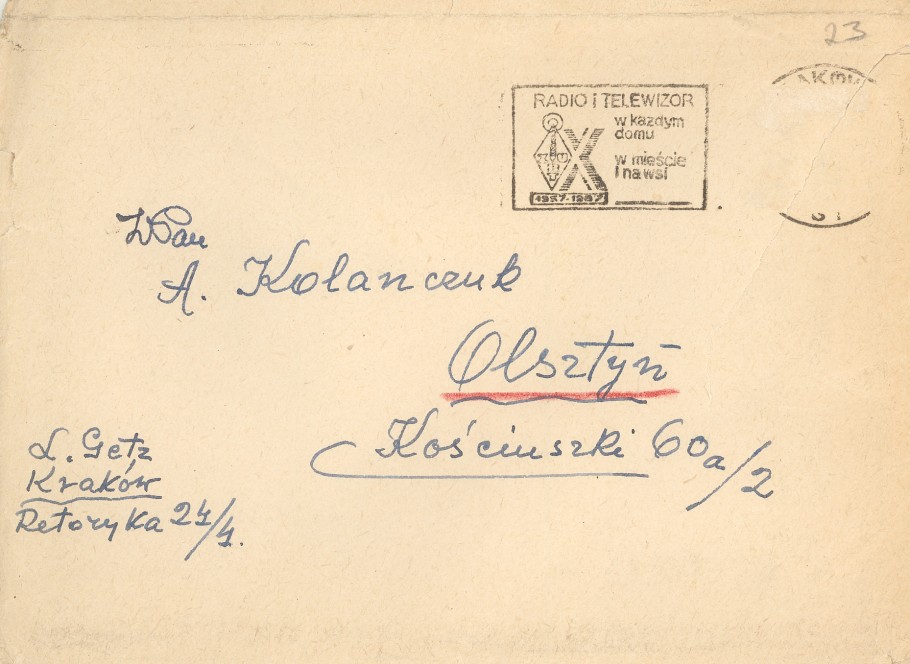 23
RADIO i TELEWIZOR
w każdym
domu
w mieście
i na wsi
X
1957-1967
WPan
A. Kolanczuk
Olsztyń
Kościuszki 60a/2
L. Getz
Kraków
Retoryka 24/4.